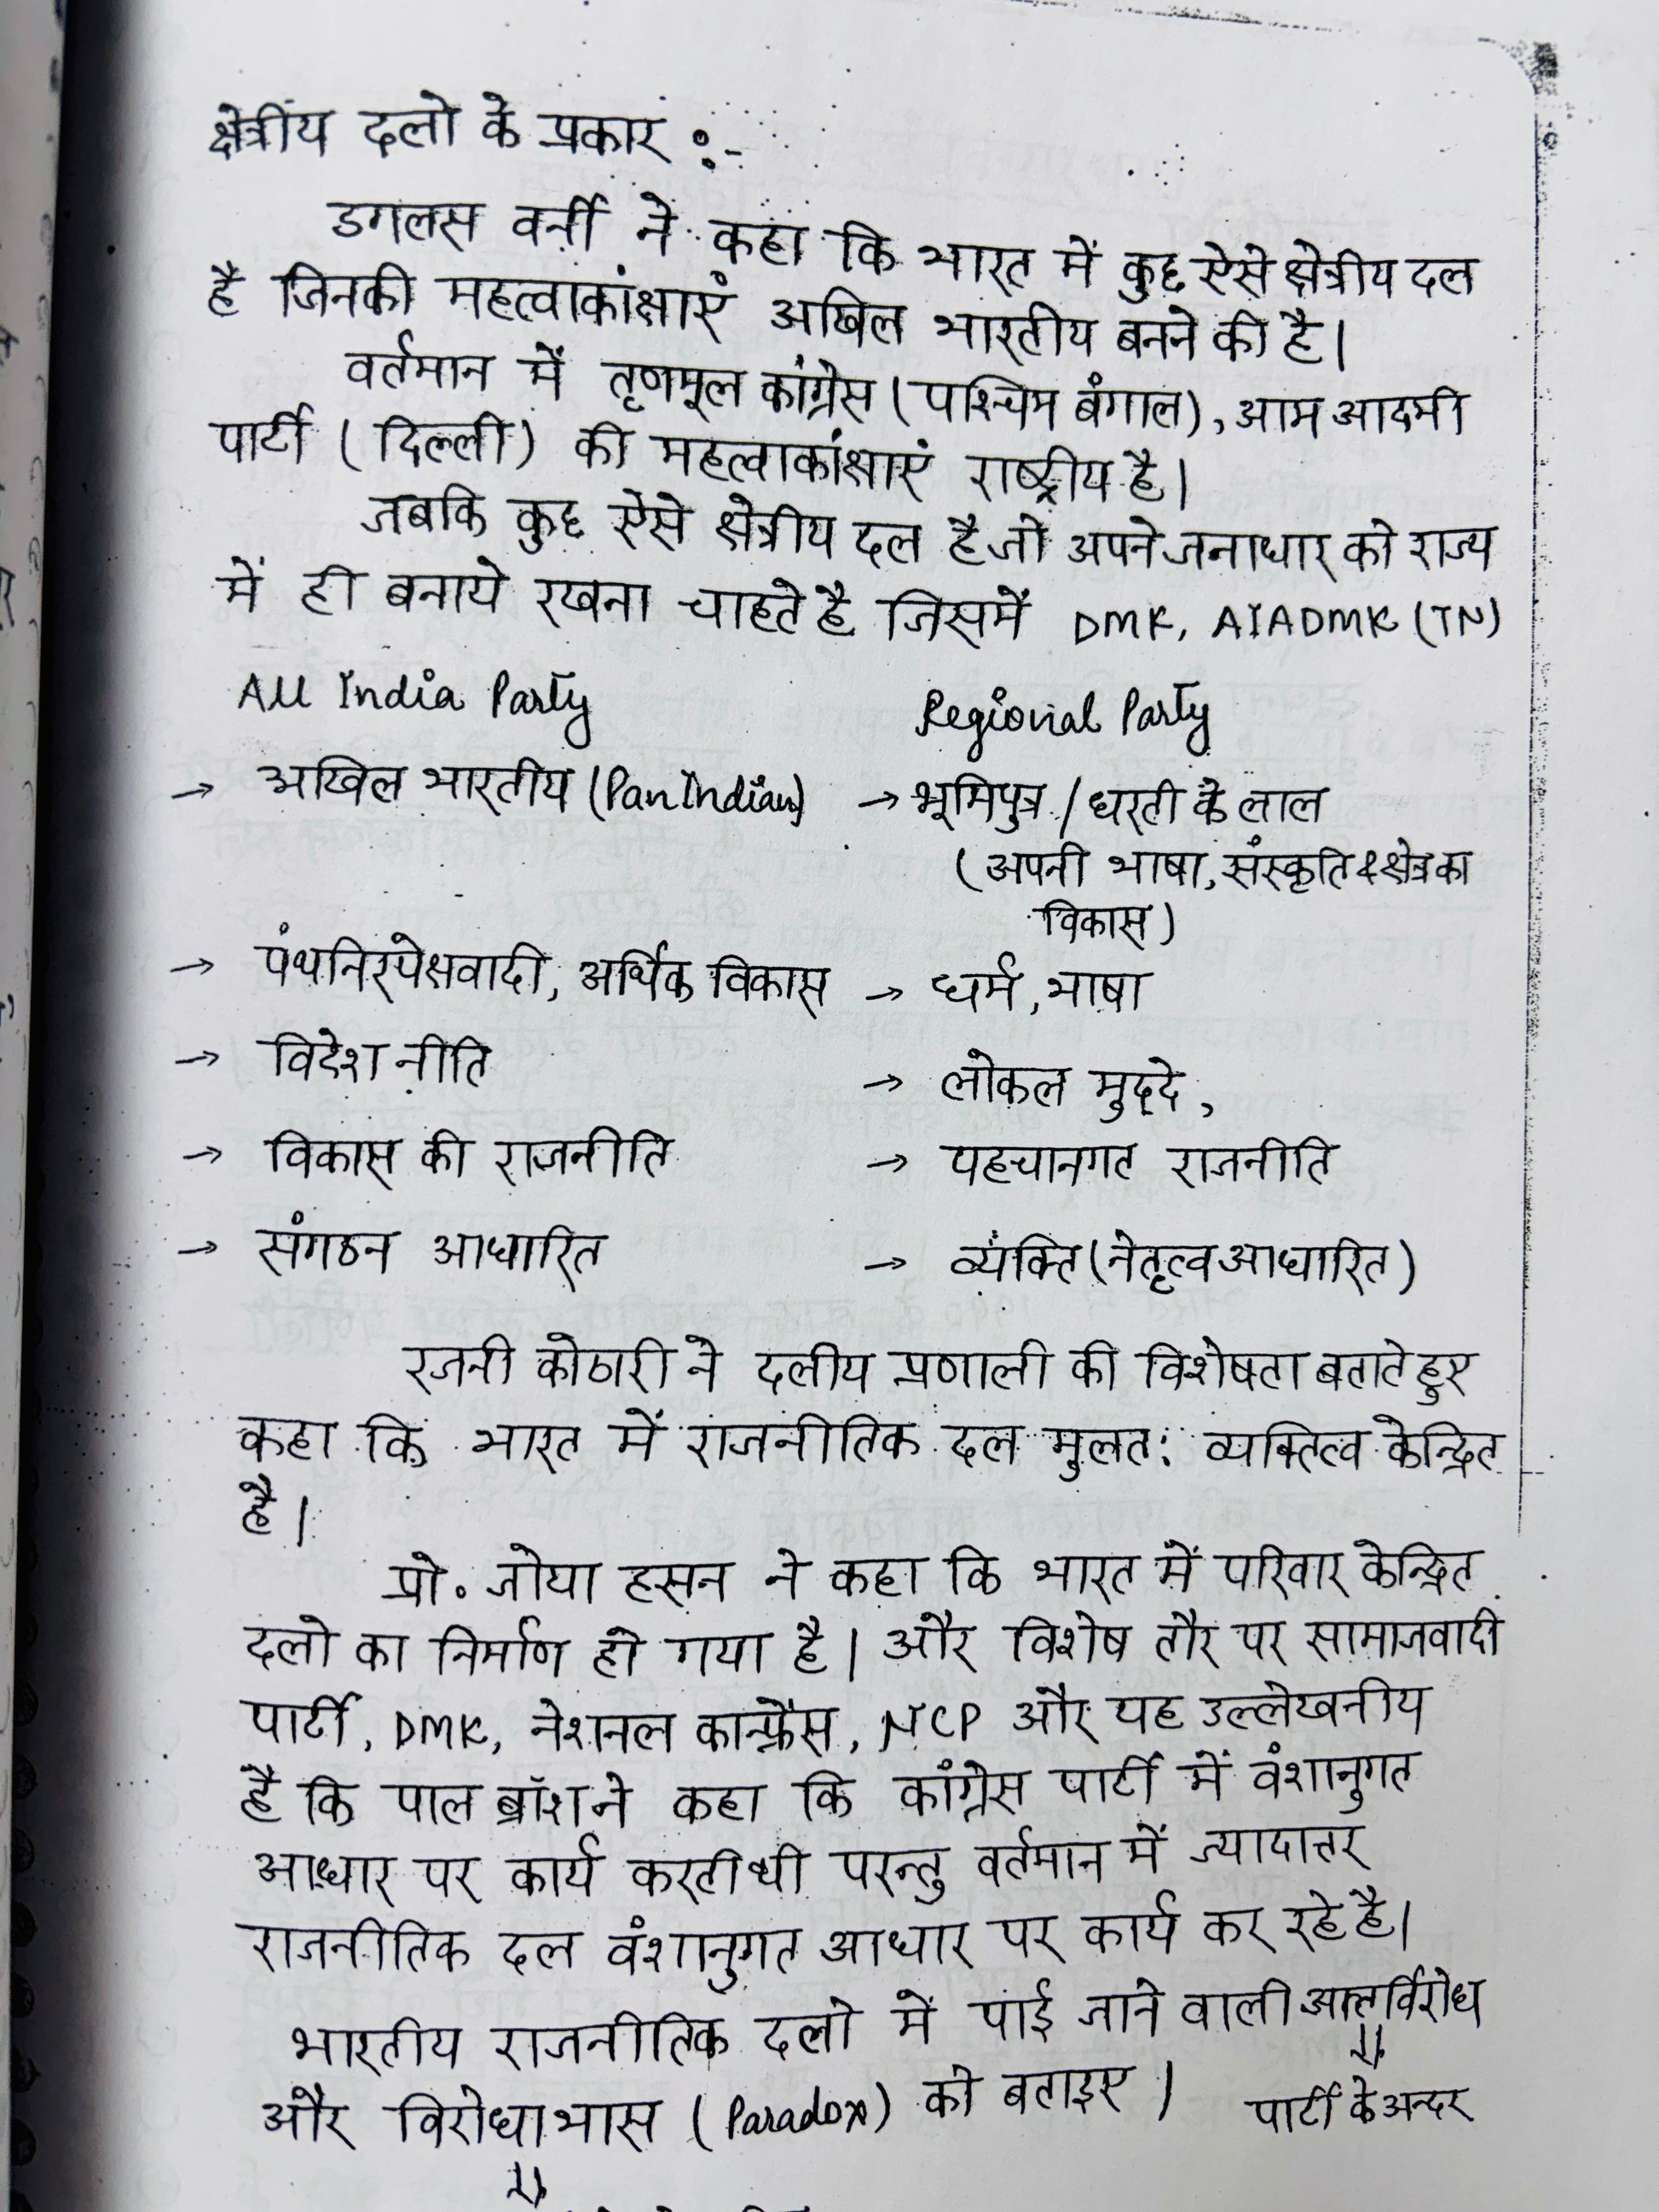 क्षेत्रीय दलो के प्रकार :-
डगलस वर्नी ने कहा कि भारत में कुछ ऐसे क्षेत्रीय दल
है जिनकी महत्वाकांक्षाएं अखिल भारतीय बनने की है।
वर्तमान में तृणमूल कांग्रेस (पश्चिम बंगाल), आम आदमी
पार्टी (दिल्ली) की महत्वाकांक्षाएं राष्ट्रीय है।
जबकि कुछ ऐसे क्षेत्रीय दल है जो अपने जनाधार को राज्य
में ही बनाये रखना चाहते है जिसमें DMK, AIADMK (TN)
All India Party Regional Party
→ अखिल भारतीय (Pan Indian) → भूमिपुत्र / धरती के लाल
(अपनी भाषा, संस्कृति & क्षेत्र का
विकास)
→ पंथनिरपेक्षवादी, आर्थिक विकास → धर्म, भाषा
→ विदेश नीति → लोकल मुद्दे,
→ विकास की राजनीति → पहचानगत राजनीति
→ संगठन आधारित → व्यक्ति (नेतृत्व आधारित)
रजनी कोठारी ने दलीय प्रणाली की विशेषता बताते हुए
कहा कि भारत में राजनीतिक दल मुलत: व्यक्तित्व केन्द्रित
है।
प्रो. जोया हसन ने कहा कि भारत में परिवार केन्द्रित
दलो का निर्माण हो गया है। और विशेष तौर पर सामाजवादी
पार्टी, DMK, नेशनल कान्फ्रेंस, NCP और यह उल्लेखनीय
है कि पाल ब्रॉश ने कहा कि कांग्रेस पार्टी में वंशानुगत
आधार पर कार्य करती थी परन्तु वर्तमान में ज्यादात्तर
राजनीतिक दल वंशानुगत आधार पर कार्य कर रहे है।
भारतीय राजनीतिक दलो में पाई जाने वाली
और विरोधाभास (Paradox) को बताइए। पार्टी के अन्दर